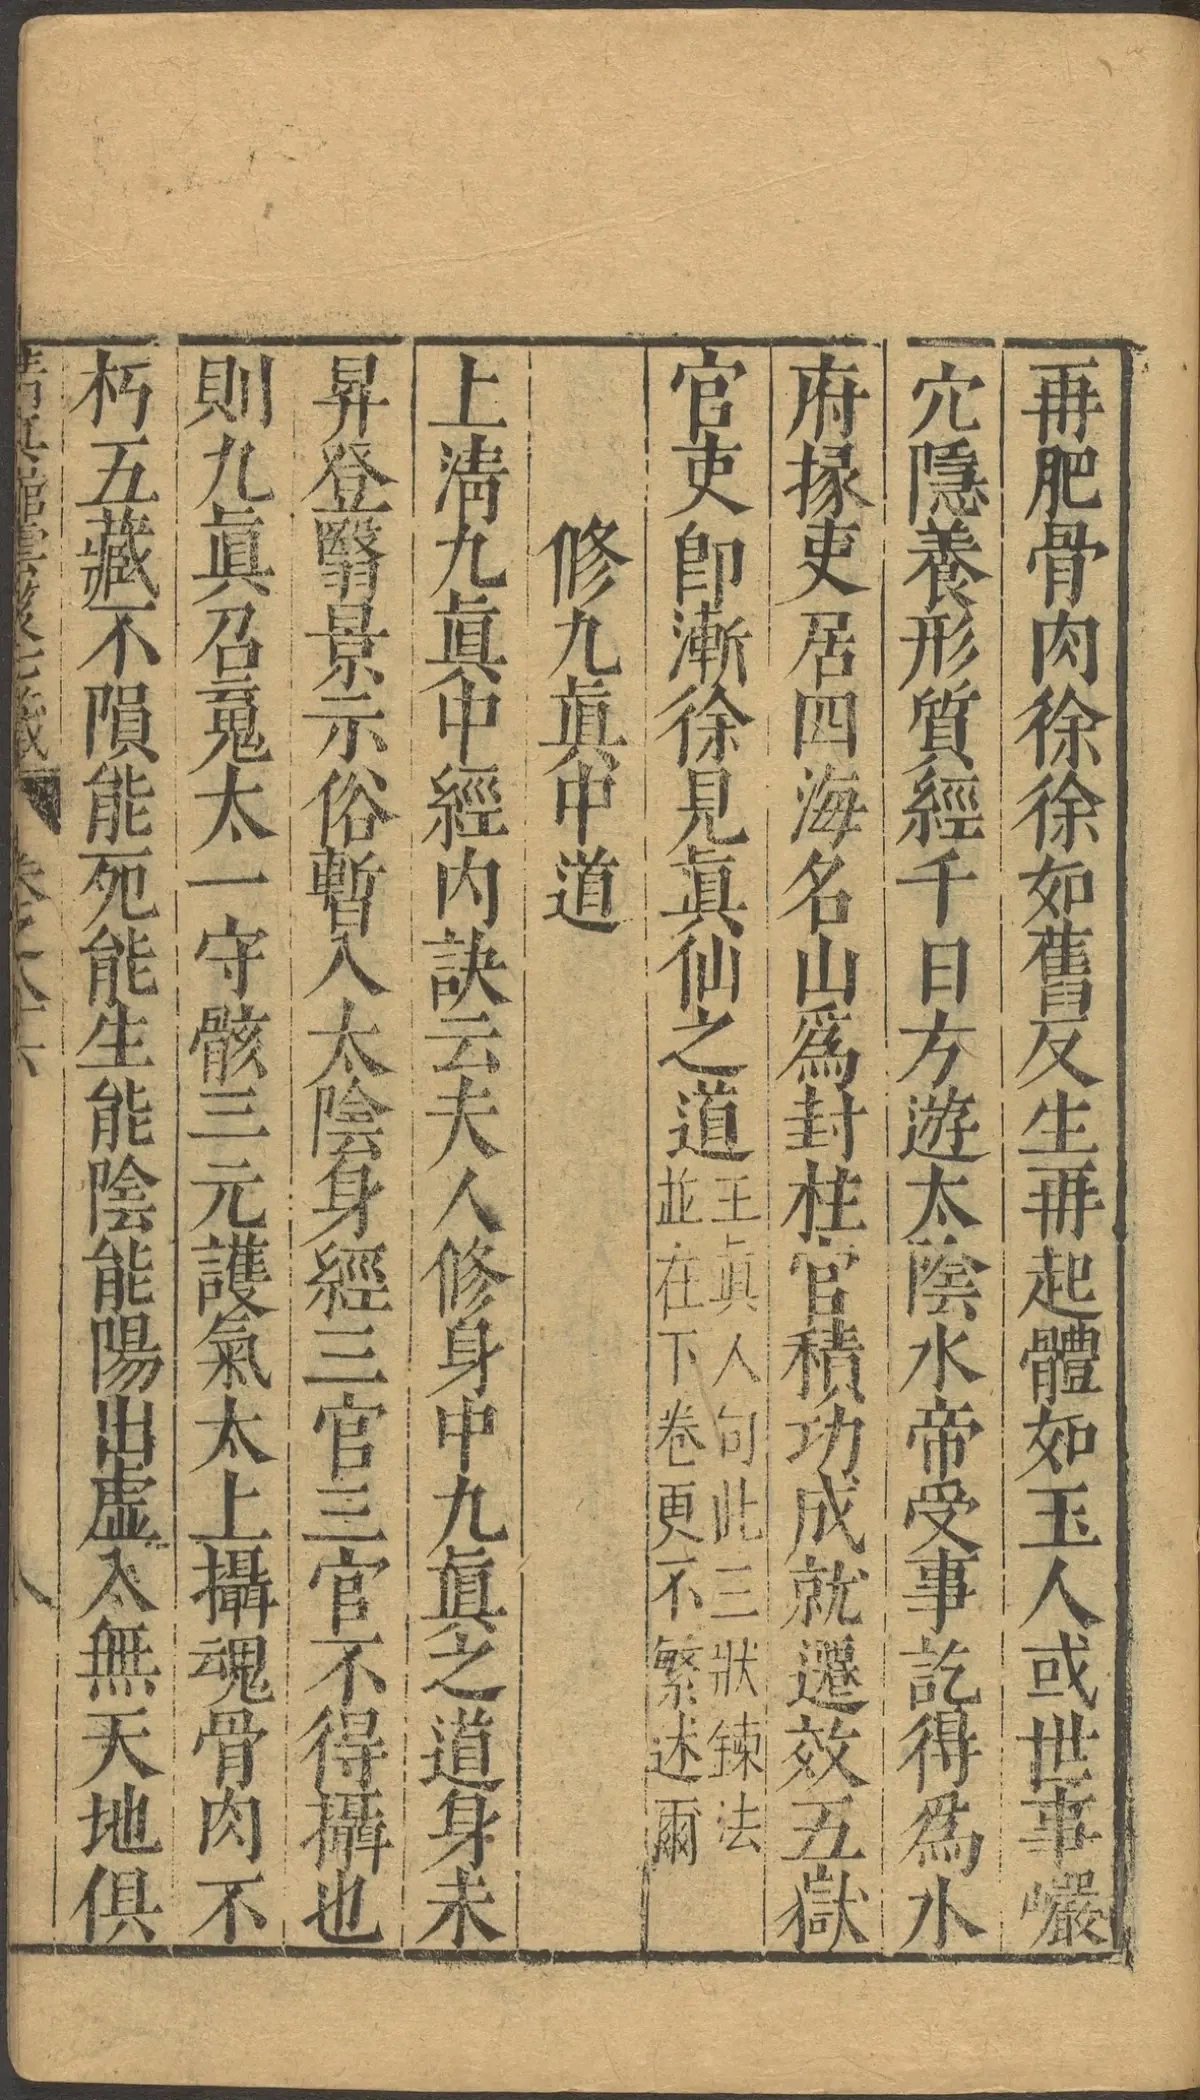 再肥骨肉徐徐如舊反生再起體如玉人或世事巖
穴隱養形質經千日方遊太陰水帝受事訖得爲水
府掾吏居四海名山爲封柱官積功成就遷效五嶽
官吏卽漸徐見眞仙之道
王眞人句此三狀鍊法
並在下卷更不繁述爾
修九眞中道
上淸九眞中經內訣云夫人修身中九眞之道身未
昇登翳景示俗暫入太陰身經三官三官不得攝也
則九眞召䰟太一守骸三元護氣太上攝魂骨肉不
朽五藏不隕能死能生能陰能陽出虛入無天地俱